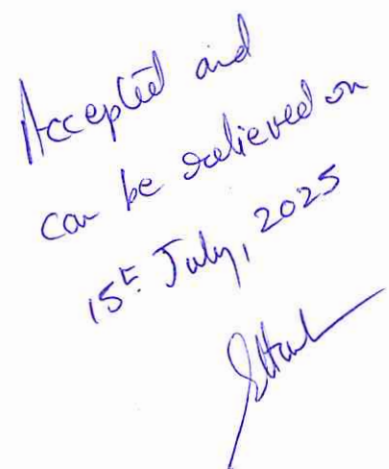 Accepted and
can be relieved on
15th July, 2025